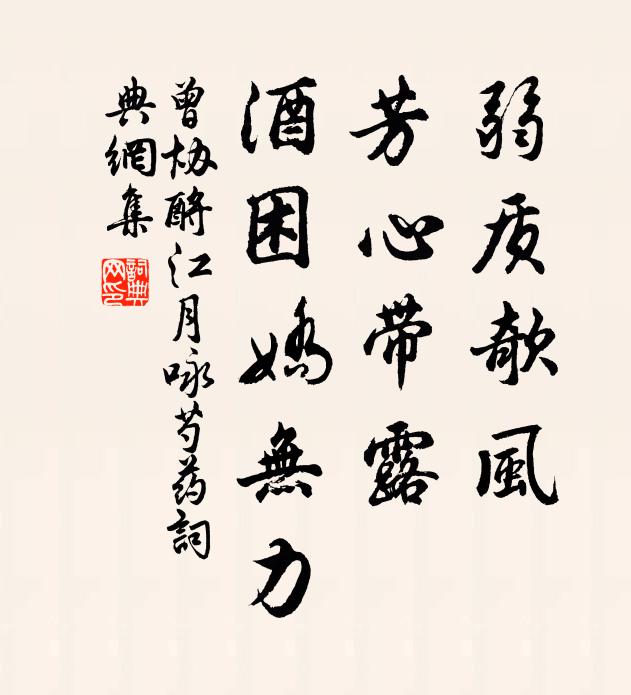 弱质欹風
芳心带露
酒困嬌無力
曾协酹江月咏芍药詞
典網集
詞典网印